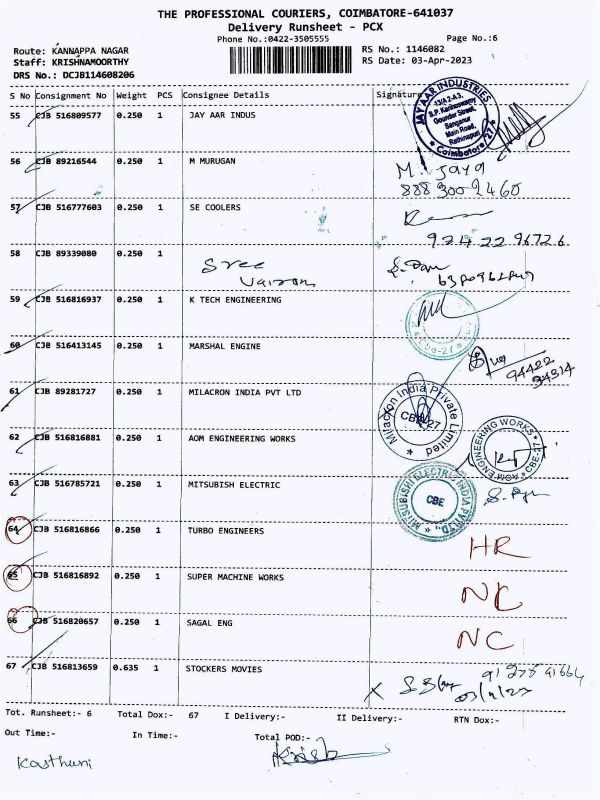 THE PROFESSIONAL COURIERS, COIMBATORE-641037
Delivery Runsheet - PCX
Phone No.:0422-3505555
Page No.:6
Route: KANNAPPA NAGAR
RS No.: 1146082
Staff: KRISHNAMOORTHY
RS Date: 03-Apr-2023
DRS No.: DCJB114608206
S No Consignment No Weight PCS Consignee Details Signature
JAY AAR INDUSTRIES
13/A2-A3,
S.P. Kannuswamy
Gounder Street,
Sanganur
Main Road,
Rathinapuri
Coimbatore-27
55 CJB 516809577 0.250 1 JAY AAR INDUS
56 CJB 89216544 0.250 1 M MURUGAN
M. Jaya
888 300 2460
57 CJB 516777603 0.250 1 SE COOLERS
924 22 96726
58 CJB 89339080 0.250 1 Sree
59 CJB 516816937 0.250 1 K TECH ENGINEERING
Cbe-27
60 CJB 516413145 0.250 1 MARSHAL ENGINE
94422
61 CJB 89281727 0.250 1 MILACRON INDIA PVT LTD
Milacron India Private Limited
CBE-27
62 CJB 516816881 0.250 1 AOM ENGINEERING WORKS
AOM ENGINEERING WORKS
CBE-27
63 CJB 516785721 0.250 1 MITSUBISH ELECTRIC
MITSUBISHI ELECTRIC INDIA PVT LTD.
CBE
64 CJB 516816866 0.250 1 TURBO ENGINEERS
HR
65 CJB 516816892 0.250 1 SUPER MACHINE WORKS
NC
66 CJB 516820657 0.250 1 SAGAL ENG
NC
67 CJB 516813659 0.635 1 STOCKERS MOVIES
Tot. Runsheet:- 6 Total Dox:- 67 I Delivery:- II Delivery:- RTN Dox:-
Out Time:- In Time:- Total POD:-